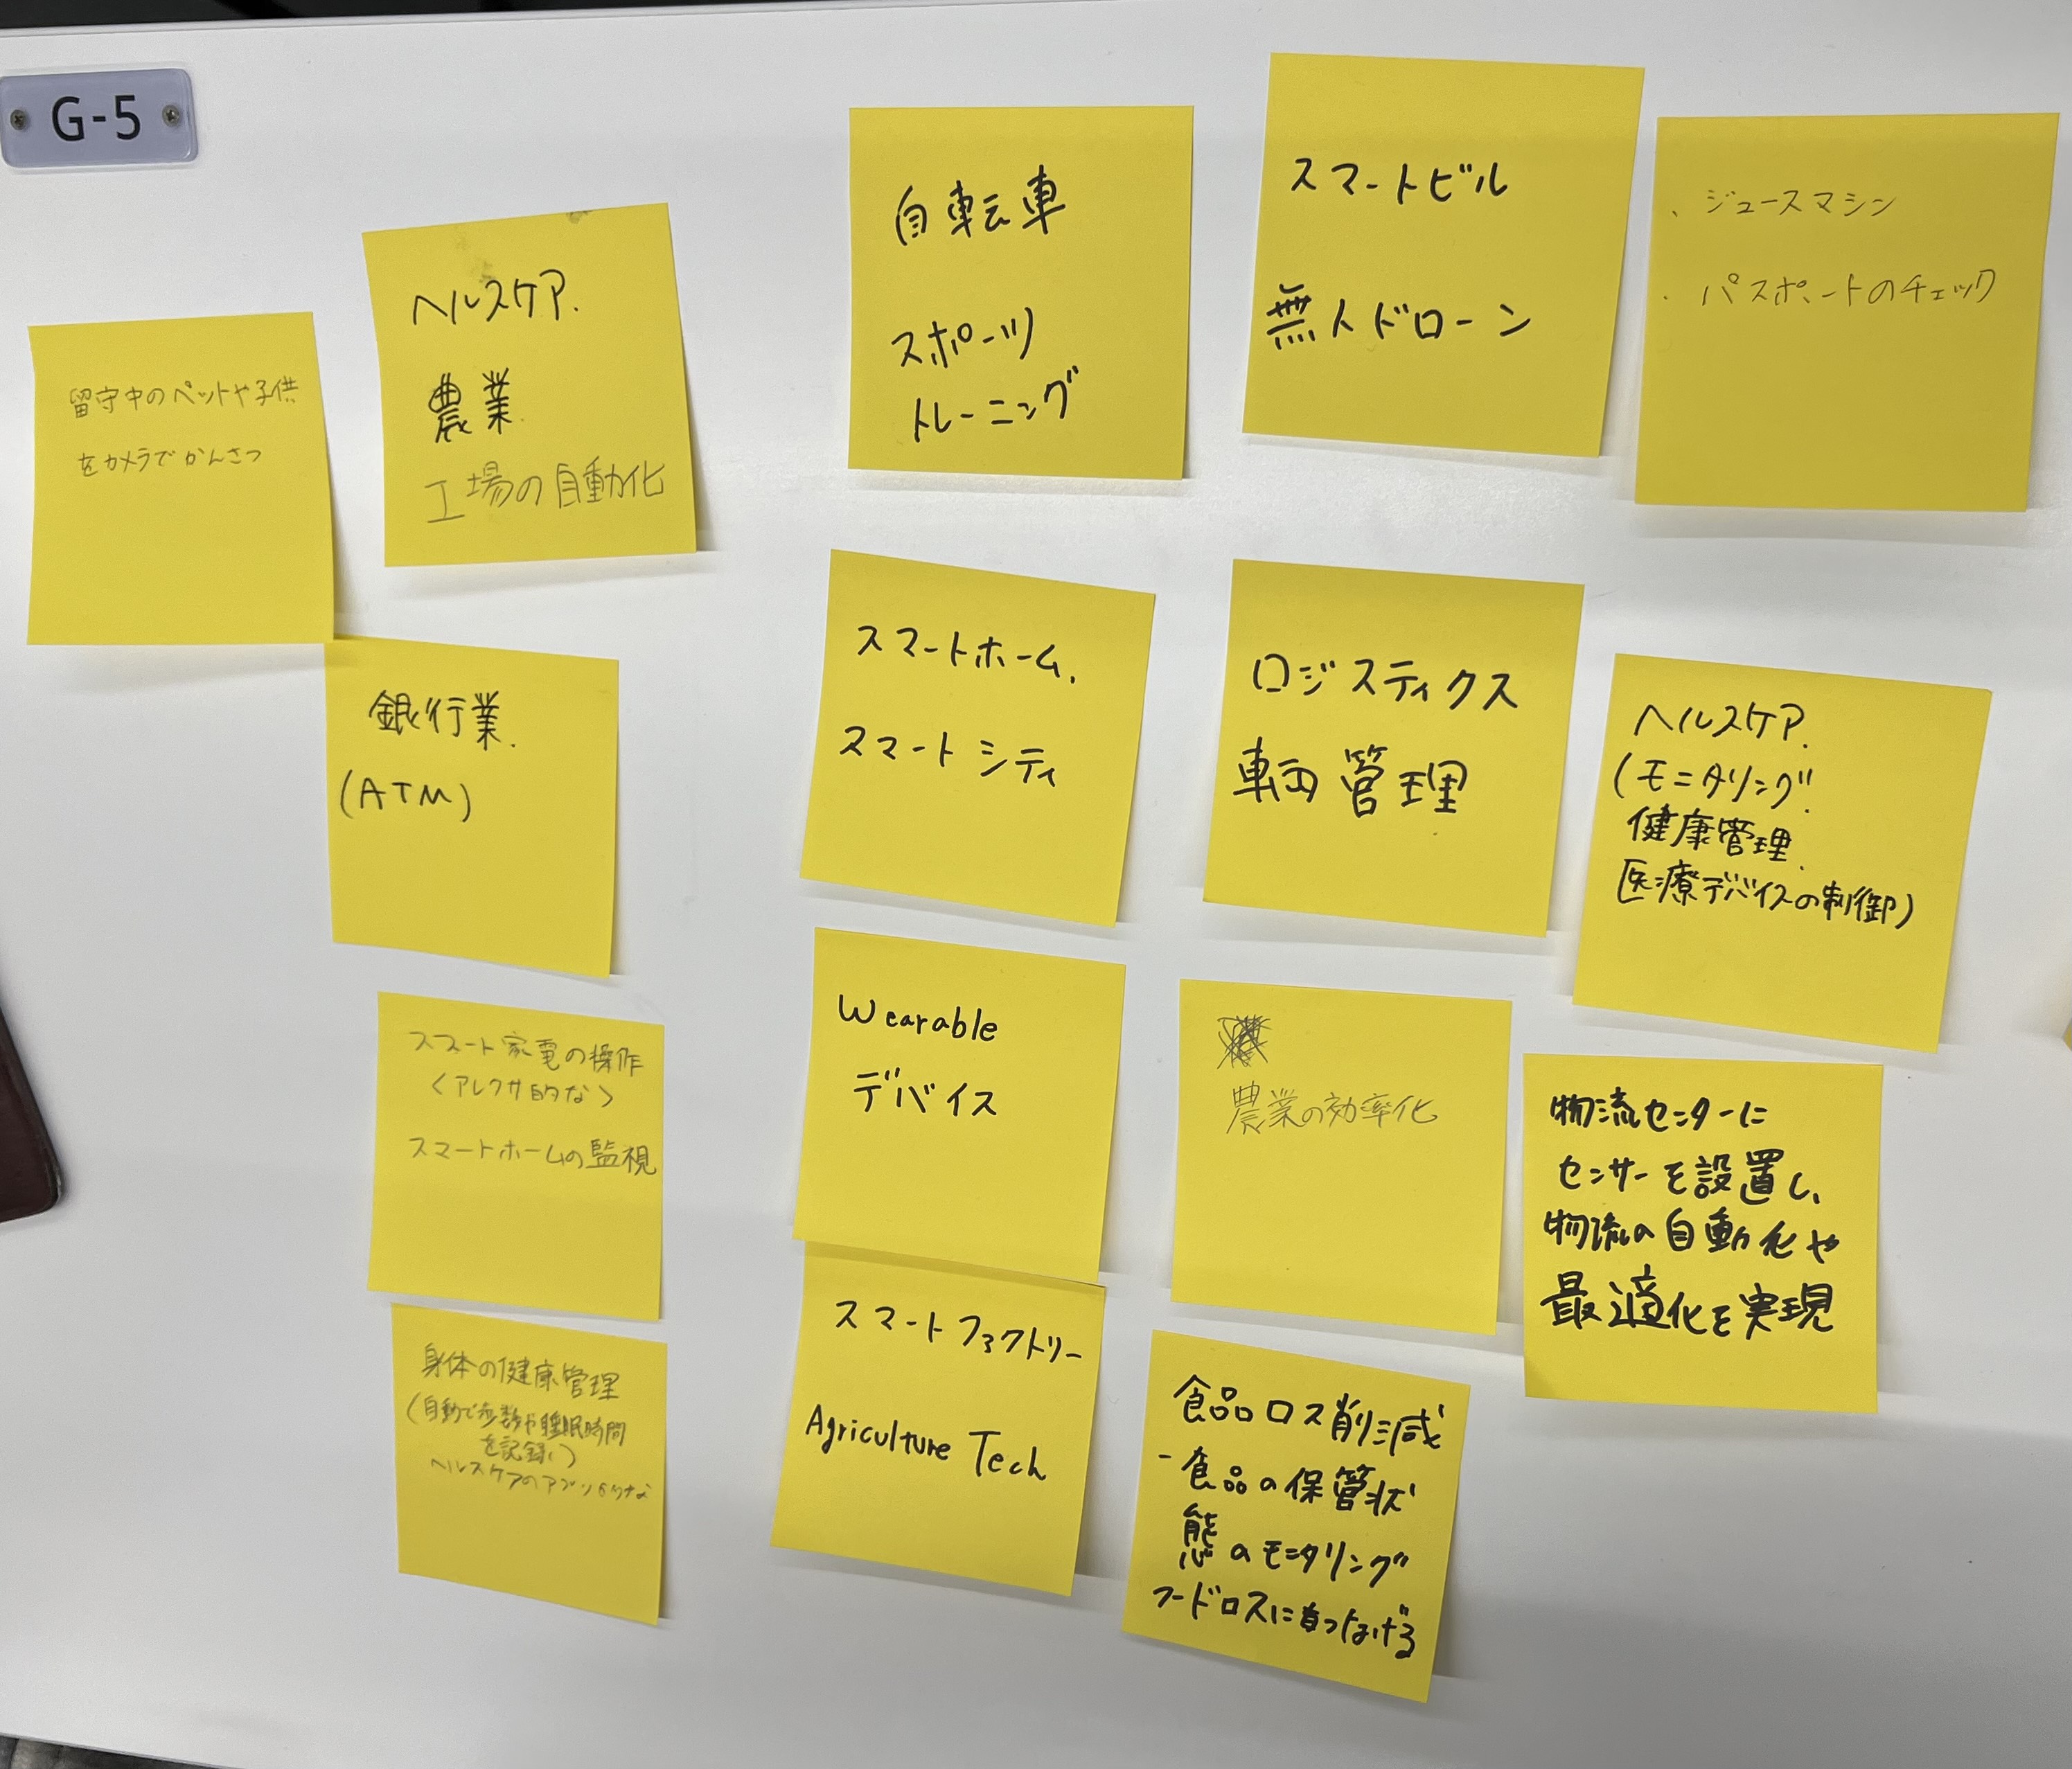 G-5
留守中のペットや子供
をカメラでかんさつ
ヘルスケア.
農業.
工場の自動化
銀行業.
(ATM)
スマート家電の操作
<アレクサ的な>
スマートホームの監視
身体の健康管理
(自動で歩数や睡眠時間
を記録)
ヘルスケアのアプリ的な
自転車
スポーツ
トレーニング
スマートホーム.
スマートシティ
Wearable
デバイス
スマートファクトリー
Agriculture Tech
スマートビル
無人ドローン
ロジスティクス
車両管理
農業の効率化
食品ロス削減
-食品の保管状
態のモニタリング
フードロスに つなげる
・ジュースマシン
・パスポートのチェック
ヘルスケア.
(モニタリング.
健康管理.
医療デバイスの制御)
物流センターに
センサーを設置し、
物流の自動化や
最適化を実現